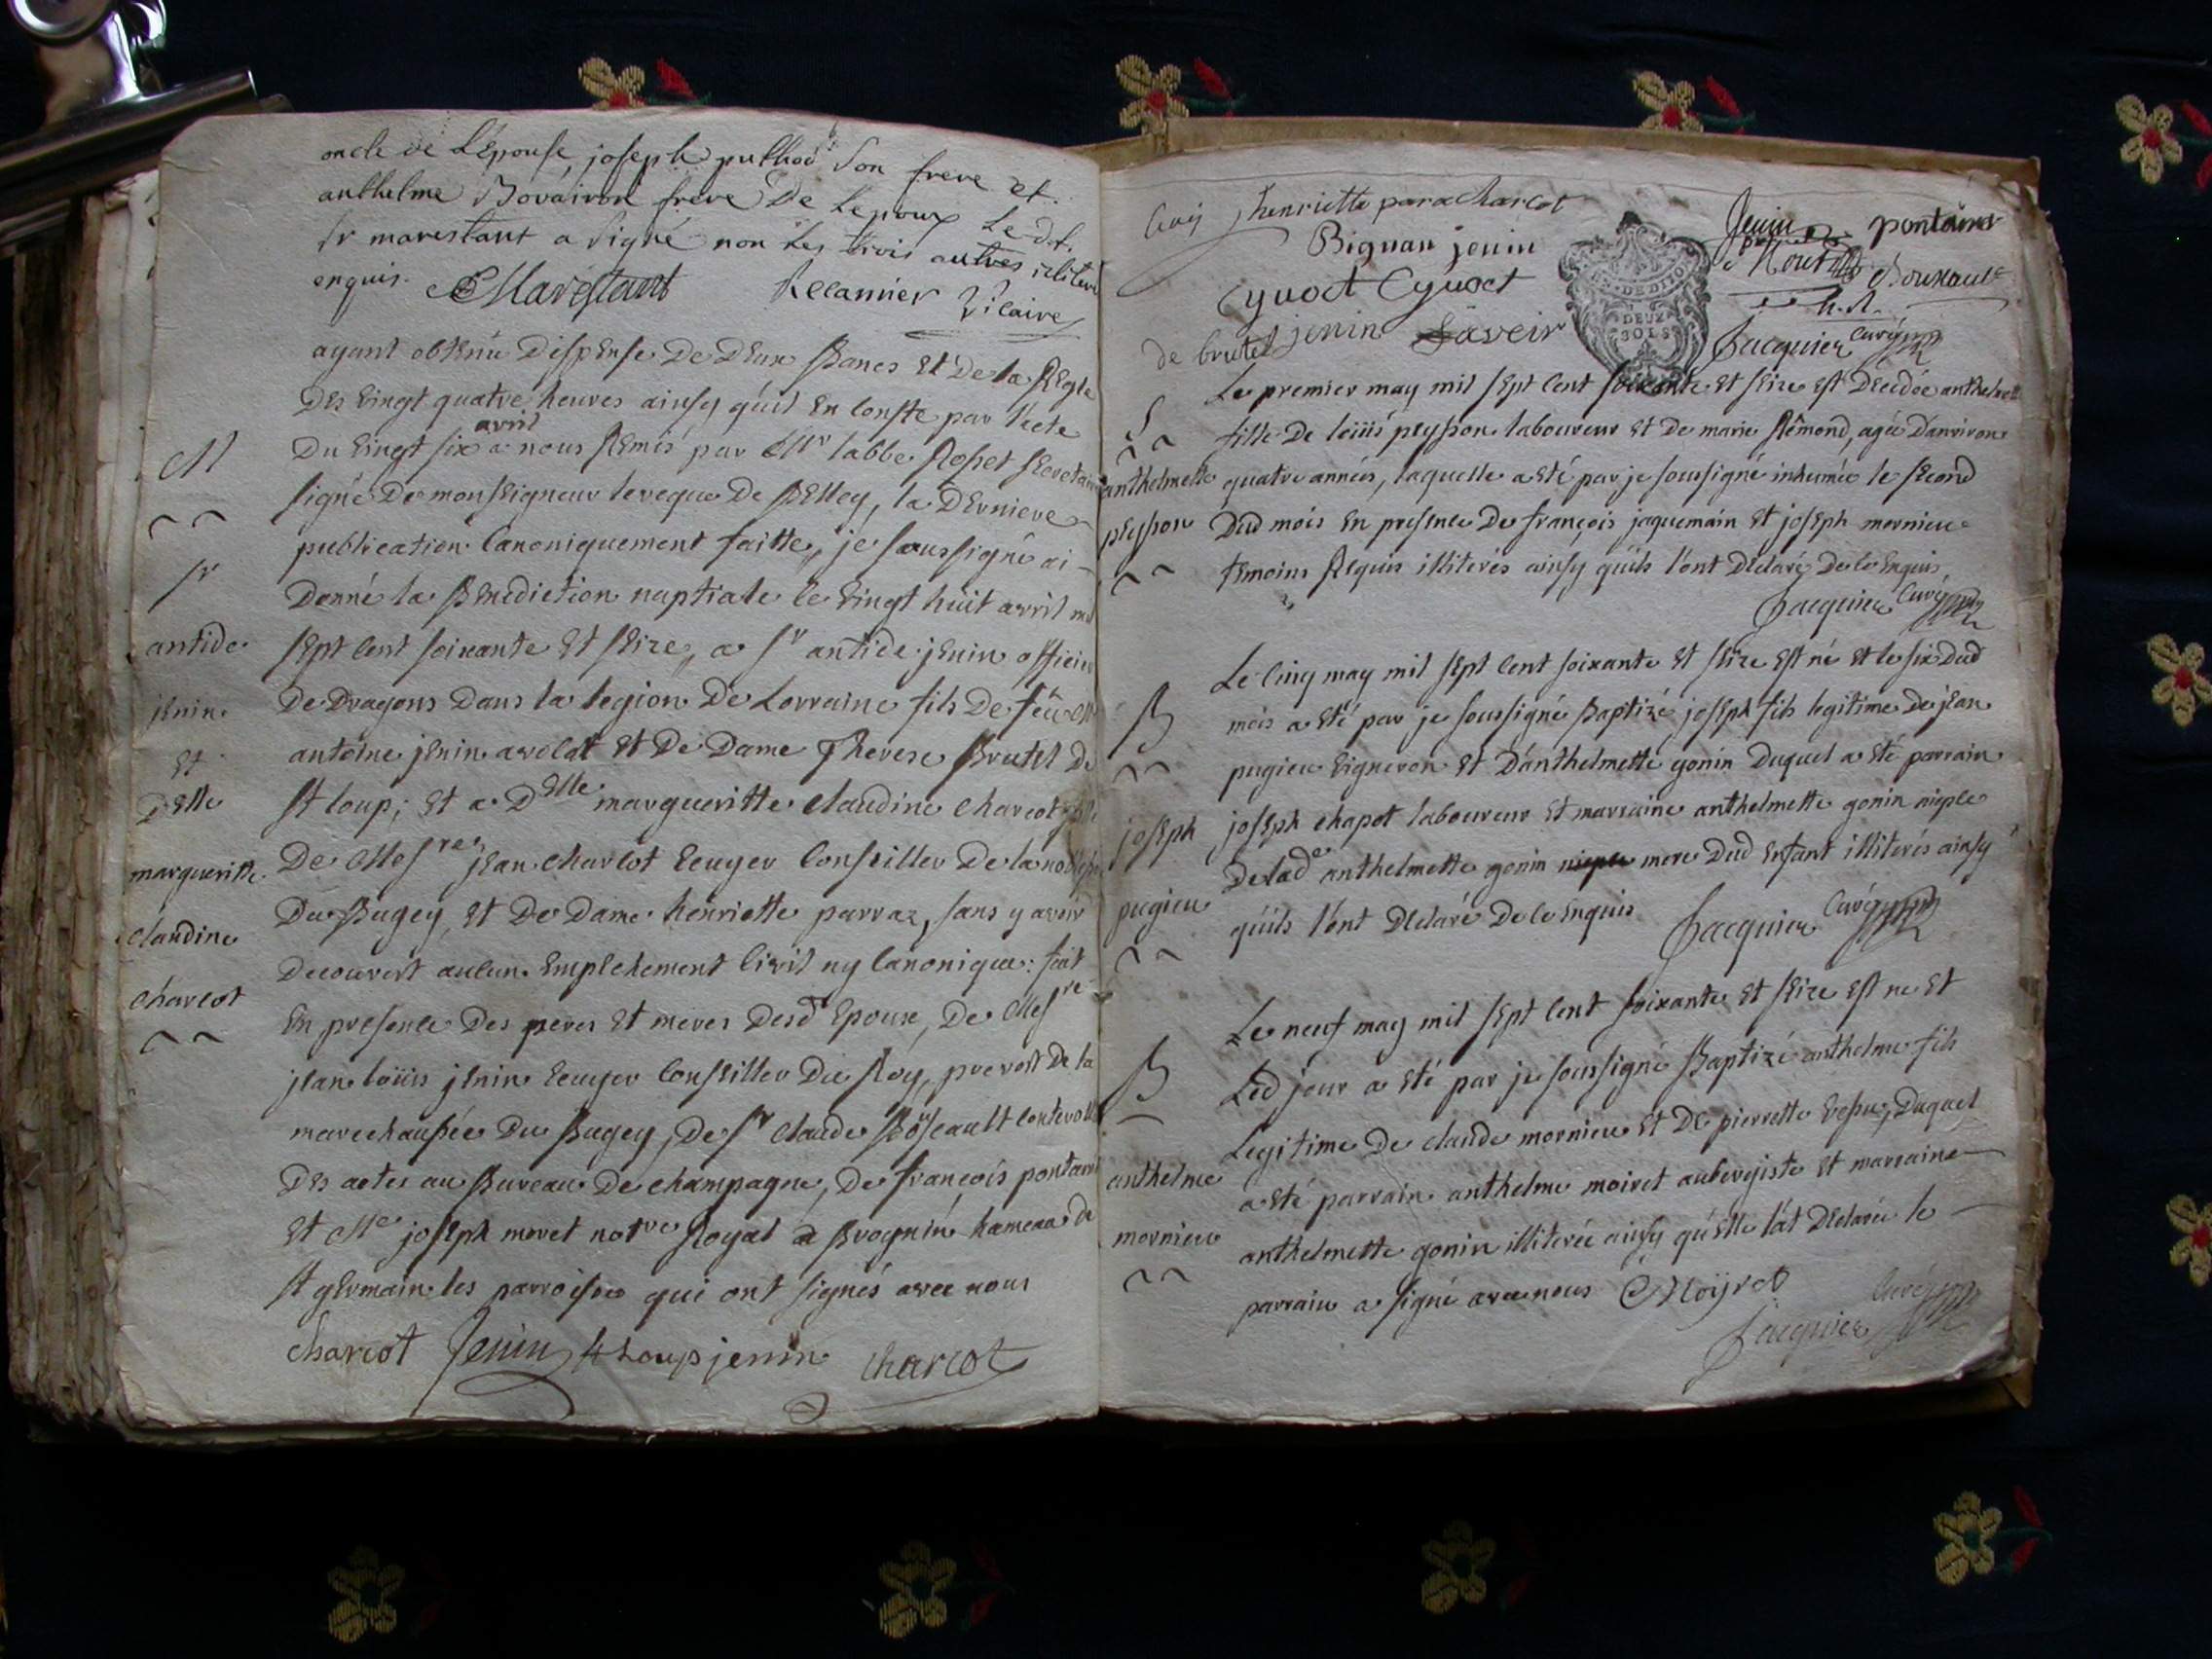 oncle de L'épouse, joseph pulliod son frere et
anthelme Bovairon frere De Lepoux Le dt.
sr marestant a signé non Les trois autres illiteré
enquis. Marestant Recamier Vicaire
ayant obtenu Dispense De Deux Bancs Et De la Regle
Des vingt quatre heures ainsy qu'il En Conste par l'acte
Du vingt six avril a nous Remis par Mr l'abbé Rosset Secretaire
signé De monseigneur leveque De Belley, la Derniere
publication Canoniquement faitte, je soussigné ai
Donné la Benediction nuptiale le vingt huit avril mil
M
Sr
antide
jenin
Et
Delle
margueritte
claudine
charcot
sept Cent soixante Et seize, a Sr antide jenin officier
De Dragons Dans la legion De Lorraine fils De feu Mr
antoine jenin avocat Et De Dame Therese Brutel De
St loup; Et a Delle margueritte claudine charcot fille
De Messre jean charcot Ecuyer Conseiller De la noblesse
Du Bugey, Et De Dame henriette parraz, sans y avoir
Decouvert aucun Empechement Civil ny Canonique: fait
En presence Des peres Et meres Desd Epoux, De Messre
jean loüis jenin Ecuyer Conseiller Du Roy, prevost De la
marechaussée Du Bugey, De Sr claude Contrôl
Des actes au Bureau De champagne, De françois pontaus
Et Me joseph moret notre Royal a Brognin hameau de
St germain les parroisses qui ont signés avec nous
charcot Jenin St Loup jenin charcot
henriette para charcot
Bignan jenin
Cyvoct Cyvoct
de brutel jenin Saveir
DEUX
SOLS
Jenin pontaus
Jacquier Curé
Le premier may mil sept Cent soixante Et seize Est Decedée anthelmette
fille De loüis peysson laboureur Et De marie Rémond, agée D'anviron
quatre années, laquelle a Eté par je soussigné inhumée le second
Dud mois En presence De françois jaquemain Et joseph mornieu
temoins Requis illiterés ainsy qu'ils l'ont Declaré De ce Enquis
S
anthelmette
peysson
Jacquier Curé
Le Cinq may mil sept Cent soixante Et seize Est né Et le six Dud
mois a Eté par je soussigné Baptizé joseph fils legitime De jean
pugieu vigneron Et D'anthelmette gonin Duquel a Eté parrain
joseph chapot laboureur Et marraine anthelmette gonin niepce
De lade anthelmette gonin mere Dud Enfant illiterés ainsy
qu'ils l'ont Declaré De ce Enquis
B
joseph
pugieu
Jacquier Curé
Le neuf may mil sept Cent soixante Et seize Est ne Et
Led jour a Eté par je soussigné Baptizé anthelme fils
Legitime De claude mornieu Et De pierrette Vepsu, Duquel
a Eté parrain anthelme moiret aubergiste Et marraine
anthelmette gonin illiterée ainsy qu'Elle l'at Declarée le
parrain a signé avec nous Moyret
B
anthelme
mornieu
Jacquier Curé